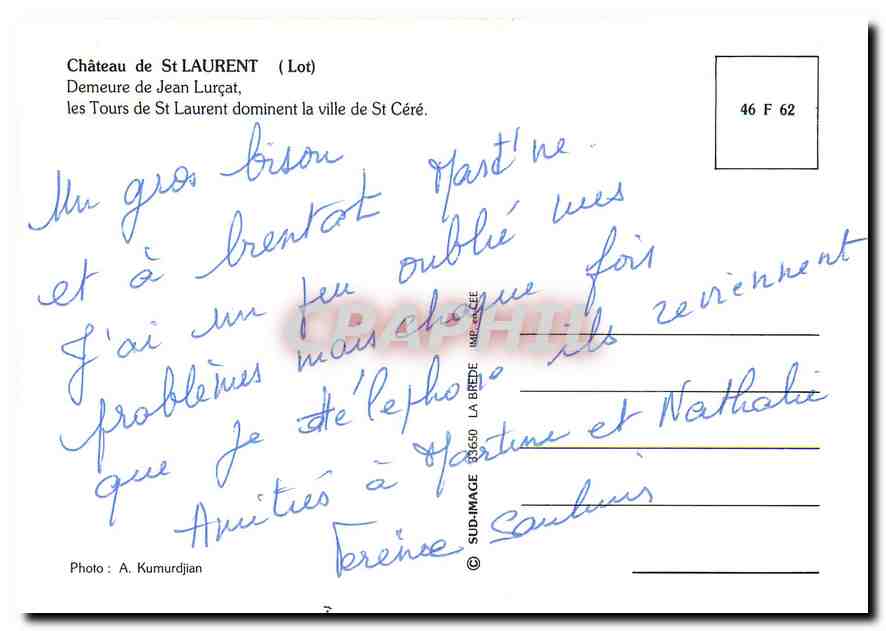 Château de St LAURENT (Lot)
Demeure de Jean Lurçat,
les Tours de St Laurent dominent la ville de St Céré.
46 F 62
Un gros bison
et à brentot Mart'ne.
J'ai un peu oublié mes
problèmes mais chaque fois
que je téléphone ils reviennent
Amitiés à Martine et Nathalie
CRAPHIL
© SUD-IMAGE 33650 LA BREDE IMP. en CEE
Photo : A. Kumurdjian